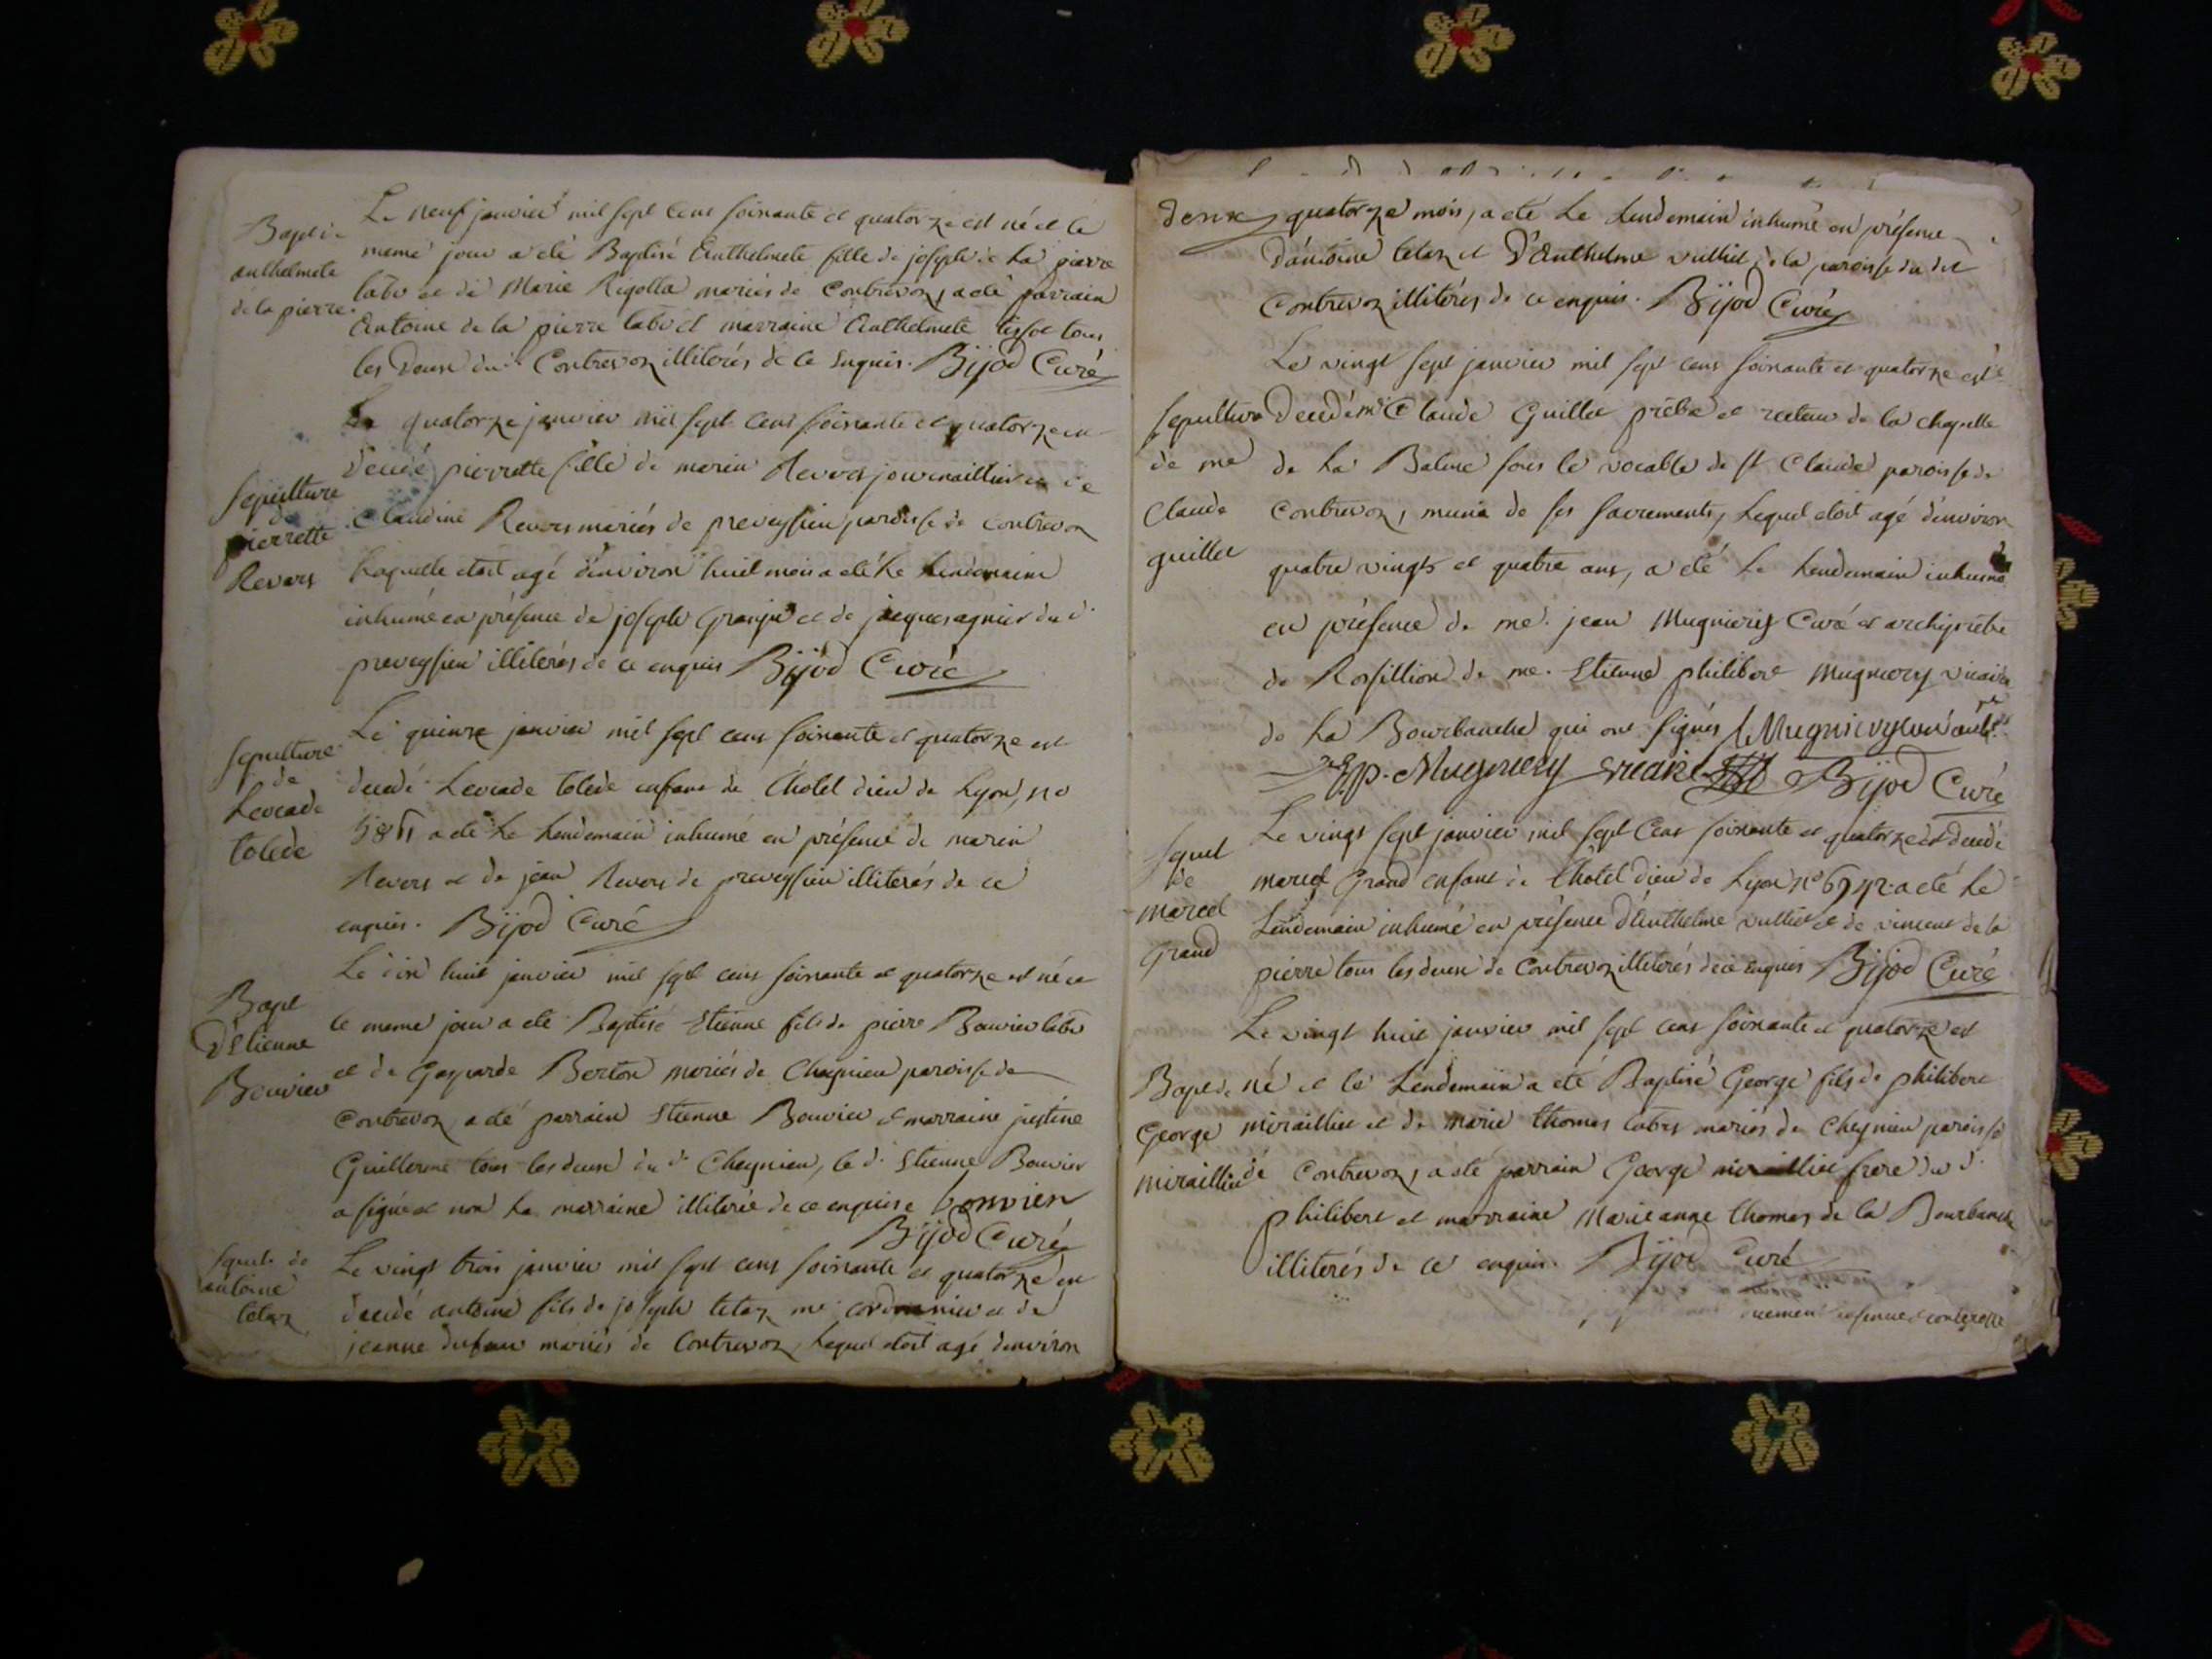 Bapt de
anthelmete
de la pierre.
Le neuf janvier mil sept cent soixante et quatorze est né et le
meme jour a eté Baptisé Anthelmete fille de joseph de La pierre
labr et de Marie Rigolla mariés de Contrevoz, a eté parrain
Antoine de la pierre labr et marraine Anthelmete tissot tous
les Deux du d. Contrevoz illiterés de Ce Enquis. Bijod Curé
Sepulture
de
pierrette
Revers
Le quatorze janvier mil sept cent soixante et quatorze est
decedé pierrette fille de marin Revers journaillier et de
Claudine Revers mariés de preveyssieu paroisse de contrevoz
Laquelle etoit agé d'environ huit mois a eté Le Lendemain
inhumé en présence de joseph Grangie et de jacques agnier du d.
preveyssieu illiterés de ce enquis Bijod Curé
Sepulture
de
Levrade
tolede
Le quinze janvier mil sept cent soixante et quatorze est
decedé Levrade tolede enfant de l'hotel dieu de Lyon, no
a eté Le Lendemain inhumé en présence de marin
Revers et de jean Revers de preveyssieu illiterés de ce
enquis. Bijod Curé
Bapt
D'Etienne
Bouvier
Le dix huit janvier mil sept cent soixante et quatorze est né et
le meme jour a eté Baptisé Etienne fils de pierre Bouvier labr
et de Gasparde Berton mariés de Cheynieu paroisse de
Contrevoz, a eté parrain Etienne Bouvier et marraine justine
Guillerme tous les deux du d. Cheynieu, le d. Etienne Bouvier
a signé et non La marraine illiterée de ce enquise bouvier
Bijod Curé
Sepult. de
antoine
tetaz
Le vingt trois janvier mil sept cent soixante et quatorze est
decedé antoine fils de joseph tetaz me cordonnier et de
jeanne mariés de Contrevoz, Lequel etoit agé d'environ
deux quatorze mois, a eté Le Lendemain inhumé en présence
d'antoine tetaz et D'Anthelme vulliet de la paroisse du dit
Contrevoz illiterés de ce enquis. Bijod Curé
Sepulture
de me
Claude
guillet
Le vingt sept janvier mil sept cent soixante et quatorze est
Decedé me Claude Guillet prêtre et recteur de la chapelle
de La Balme sous le vocable de st Claude paroisse de
Contrevoz, muni de ses sacrements, Lequel etoit agé d'environ
quatre vingts et quatre ans, a eté Le Lendemain inhumé
en présence de me. jean Mugniery Curé et archiprêtre
de Rossillion de me. Etienne philibert Mugniery vicaire
de La Bourbanche qui ont signés Mugniery curé
E. p. Mugniery vicaire Bijod Curé
Sepul
de
marcel
Grand
Le vingt sept janvier mil sept Cent soixante et quatorze est decedé
marcel Grand enfant de l'hotel dieu de Lyon no a eté Le
Lendemain inhumé en présence d'Anthelme vulliet et de vincent de la
pierre tous les deux de Contrevoz illiterés de ce Enquis Bijod Curé
Bapt de
George
miraillier
Le vingt huit janvier mil sept cent soixante et quatorze est
né et le Lendemain a eté Baptisé George fils de philibert
miraillier et de marie thomas labrs mariés de Cheynieu paroisse
de Contrevoz, a eté parrain George miraillier frere du d.
philibert et marraine Marie anne thomas de la Bourbanche
illiterés de ce enquis. Bijod Curé